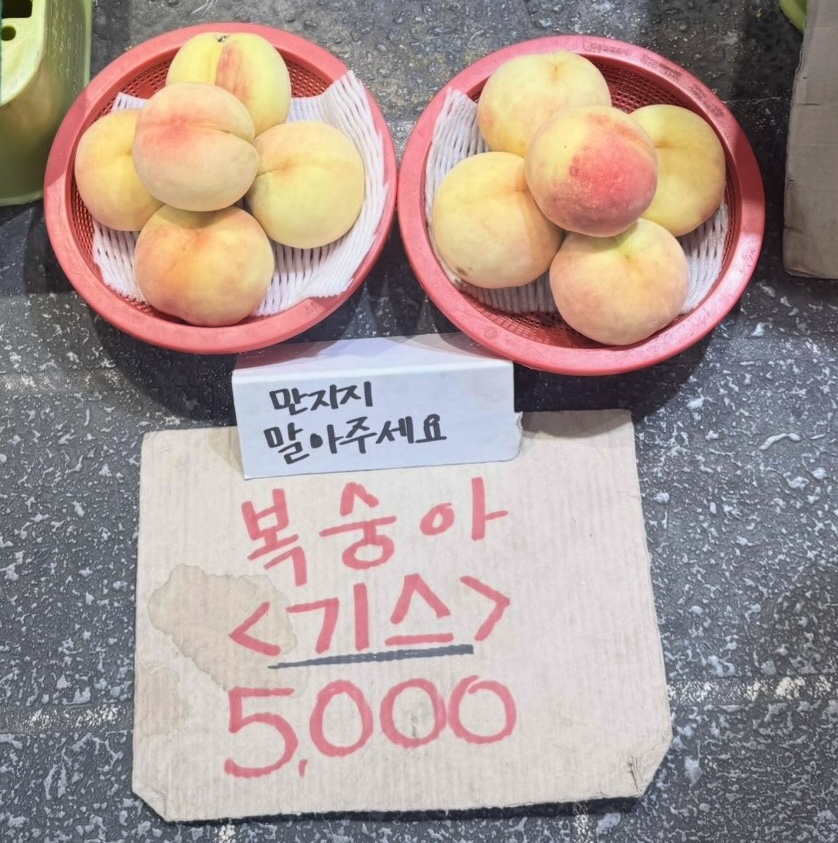 만지지
말아주세요
복숭아
<기스>
5,000